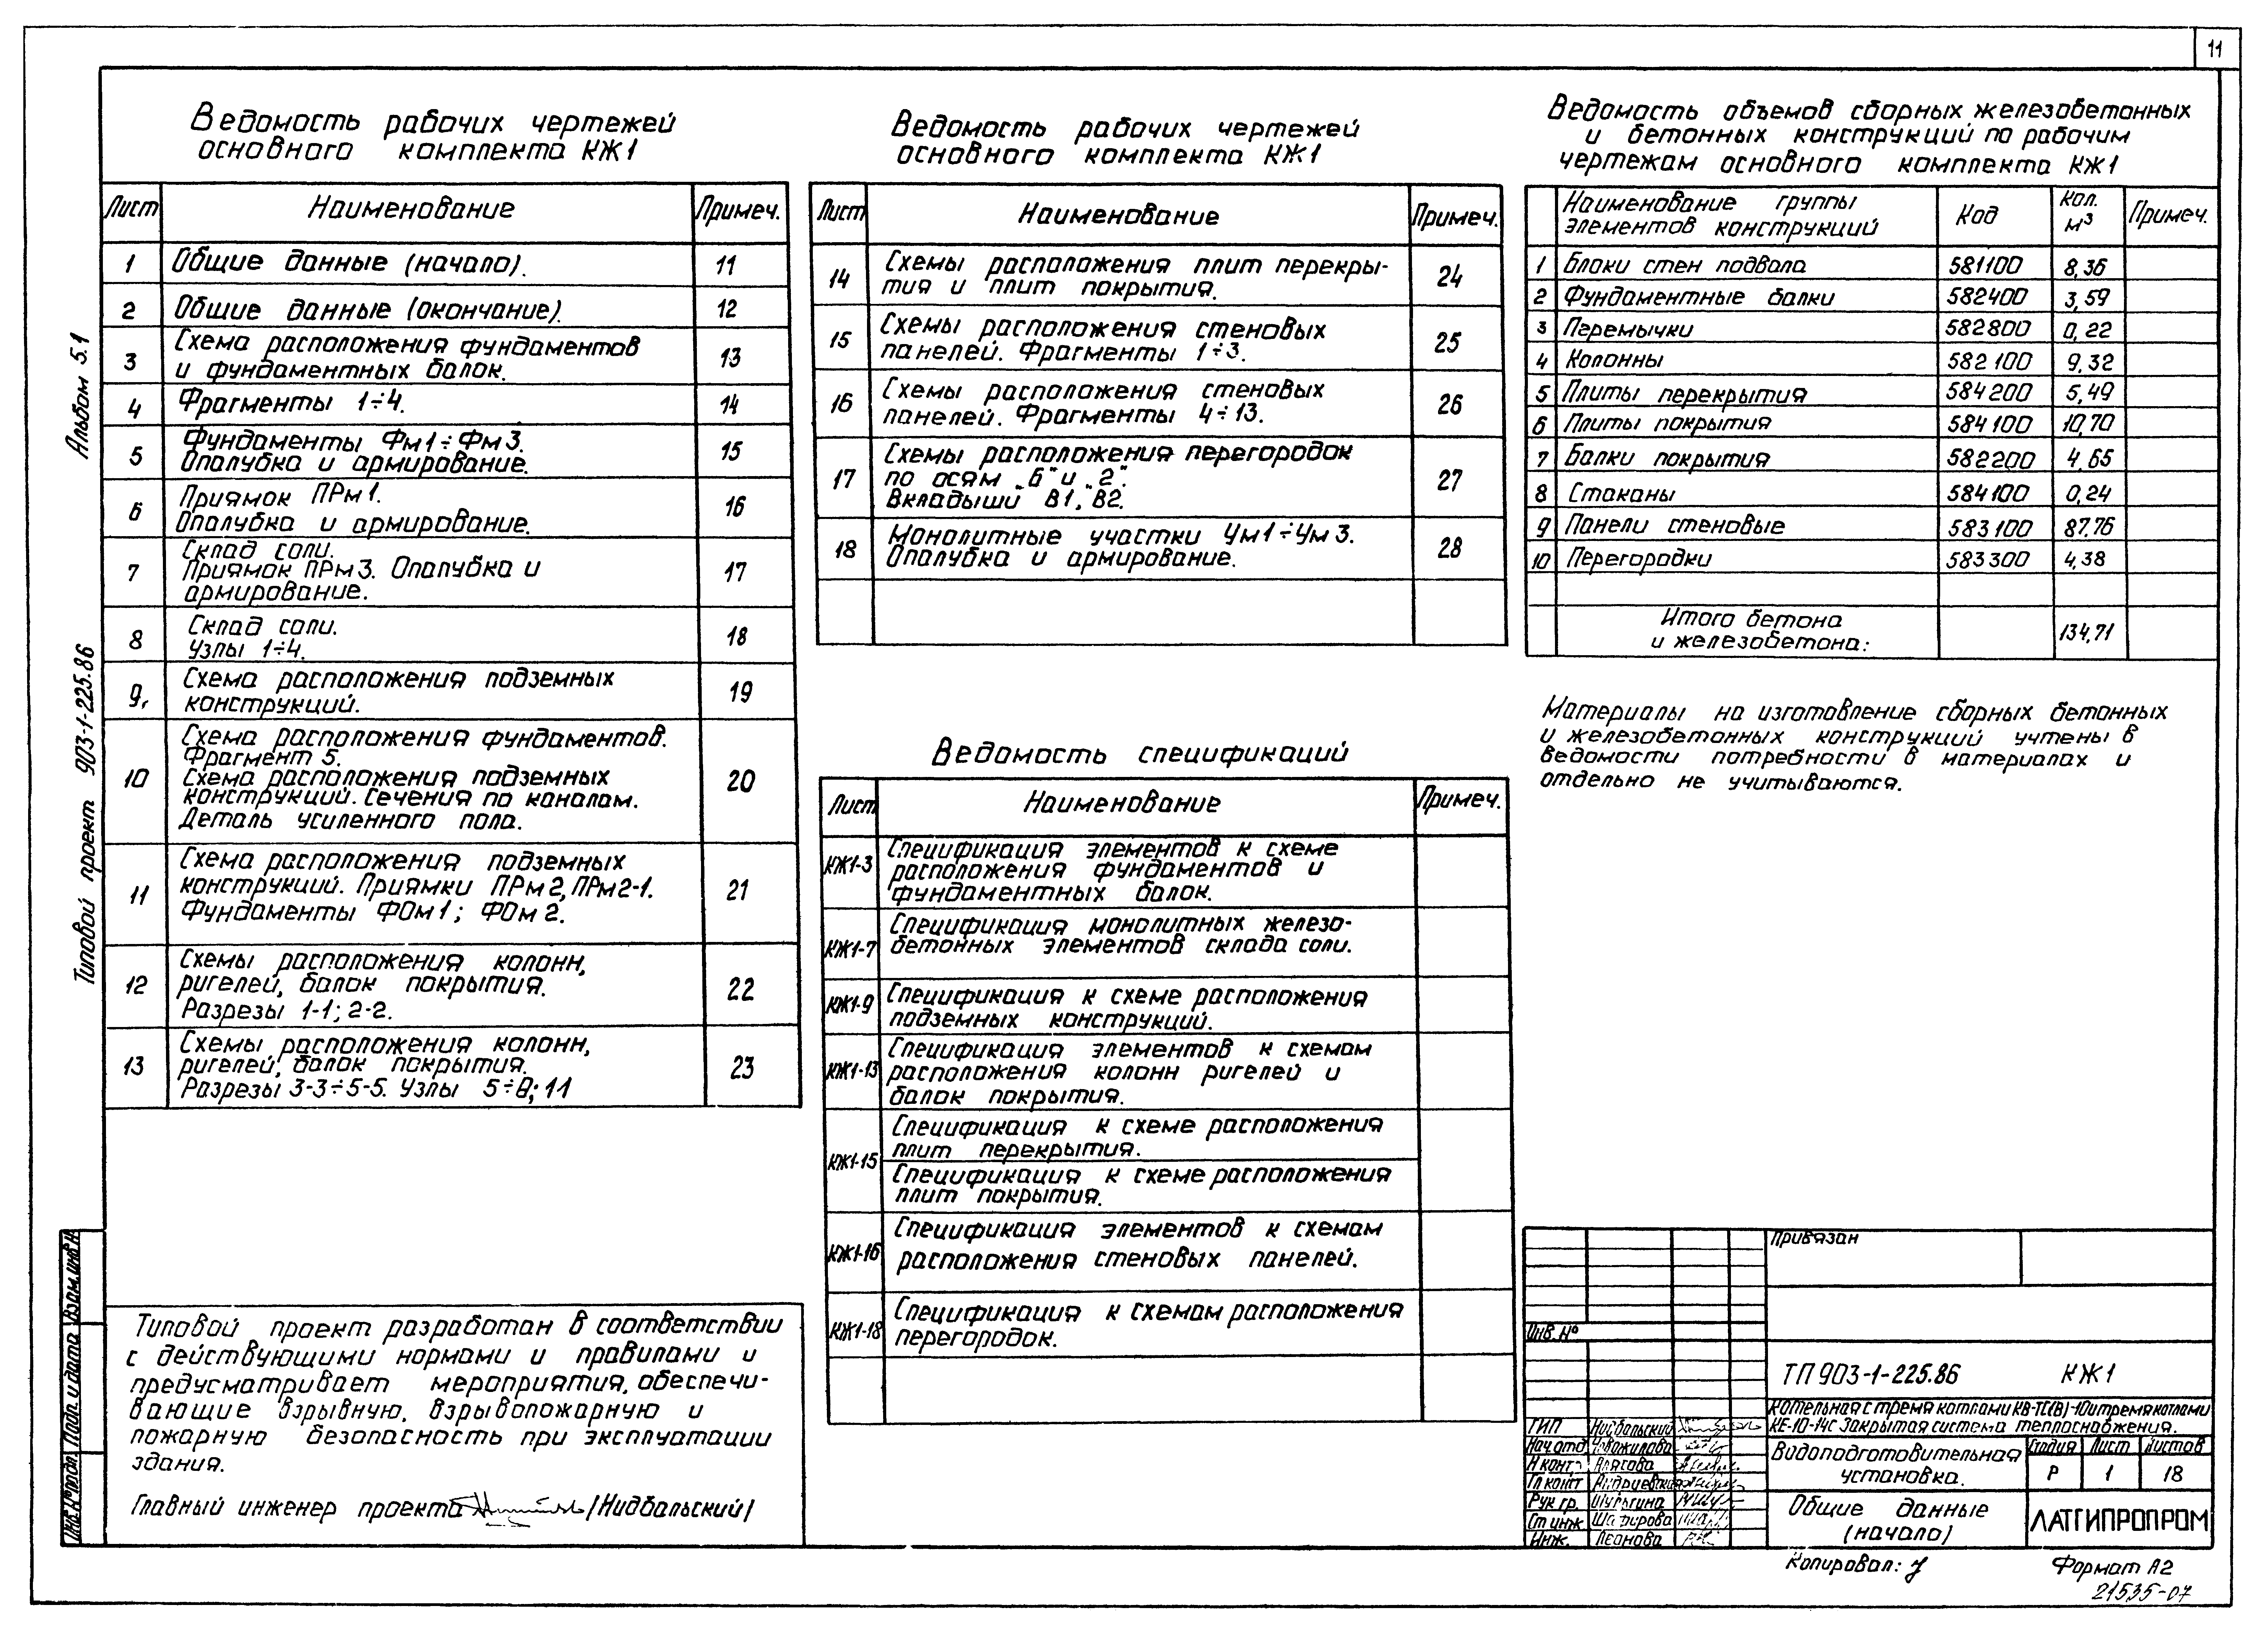 11
Альбом 5.1
Типовой проект 903-1-225.86
Ведомость рабочих чертежей
основного комплекта КЖ1
Лист Наименование Примеч.
1 Общие данные (начало). 11
2 Общие данные (окончание). 12
3 Схема расположения фундаментов 13
и фундаментных балок.
4 Фрагменты 1÷4. 14
5 Фундаменты Фм1÷Фм3. 15
Опалубка и армирование.
6 Приямок ПРм1. 16
Опалубка и армирование.
Склад соли.
7 Приямок ПРм3. Опалубка и 17
армирование.
8 Склад соли. 18
Узлы 1÷4.
9 Схема расположения подземных 19
конструкций.
Схема расположения фундаментов.
Фрагмент 5.
10 Схема расположения подземных 20
конструкций. Сечения по каналам.
Деталь усиленного пола.
Схема расположения подземных
11 конструкций. Приямки ПРм2, ПРм2-1. 21
Фундаменты ФОм1; ФОм2.
Схемы расположения колонн,
12 ригелей, балок покрытия. 22
Разрезы 1-1; 2-2.
Схемы расположения колонн,
13 ригелей, балок покрытия. 23
Разрезы 3-3÷5-5. Узлы 5÷8; 11
Типовой проект разработан в соответствии
с действующими нормами и правилами и
предусматривает мероприятия, обеспечи-
вающие взрывную, взрывопожарную и
пожарную безопасность при эксплуатации
здания.
Главный инженер проекта /Нидбальский/
Ведомость рабочих чертежей
основного комплекта КЖ1
Лист Наименование Примеч.
14 Схемы расположения плит перекры- 24
тия и плит покрытия.
15 Схемы расположения стеновых 25
панелей. Фрагменты 1÷3.
16 Схемы расположения стеновых 26
панелей. Фрагменты 4÷13.
Схемы расположения перегородок
17 по осям „Б" и „2". 27
Вкладыши В1, В2.
18 Монолитные участки Ум1÷Ум3. 28
Опалубка и армирование.
Ведомость спецификаций
Лист Наименование Примеч.
КЖ1-3 Спецификация элементов к схеме
расположения фундаментов и
фундаментных балок.
КЖ1-7 Спецификация монолитных железо-
бетонных элементов склада соли.
КЖ1-9 Спецификация к схеме расположения
подземных конструкций.
КЖ1-13 Спецификация элементов к схемам
расположения колонн ригелей и
балок покрытия.
КЖ1-15 Спецификация к схеме расположения
плит перекрытия.
Спецификация к схеме расположения
плит покрытия.
КЖ1-16 Спецификация элементов к схемам
расположения стеновых панелей.
КЖ1-18 Спецификация к схемам расположения
перегородок.
Ведомость объемов сборных железобетонных
и бетонных конструкций по рабочим
чертежам основного комплекта КЖ1
Наименование группы элементов конструкций Код Кол. м³ Примеч.
1 Блоки стен подвала 581100 8,36
2 Фундаментные балки 582400 3,59
3 Перемычки 582800 0,22
4 Колонны 582100 9,32
5 Плиты перекрытия 584200 5,49
6 Плиты покрытия 584100 10,70
7 Балки покрытия 582200 4,65
8 Стаканы 584100 0,24
9 Панели стеновые 583100 87,76
10 Перегородки 583300 4,38
Итого бетона
и железобетона: 134,71
Материалы на изготовление сборных бетонных
и железобетонных конструкций учтены в
ведомости потребности в материалах и
отдельно не учитываются.
Привязан
Инв. №
ТП 903-1-225.86 КЖ1
Котельная с тремя котлами КВ-ТС(В)-10 и тремя котлами
КЕ-10-14С Закрытая система теплоснабжения.
ГИП Нидбальский
Нач.отд. Новожилова
Н.конт. Власова
Гл.конст
Рук.гр. Шурыгина
Ст.инж.
Инж. Леонова
Водоподготовительная
установка.
Стадия Лист Листов
Р 1 18
Общие данные
(начало)
ЛАТГИПРОПРОМ
Копировал:
Формат А2
21535-07
Инв.№подл. Подп. и дата Взам.инв.№